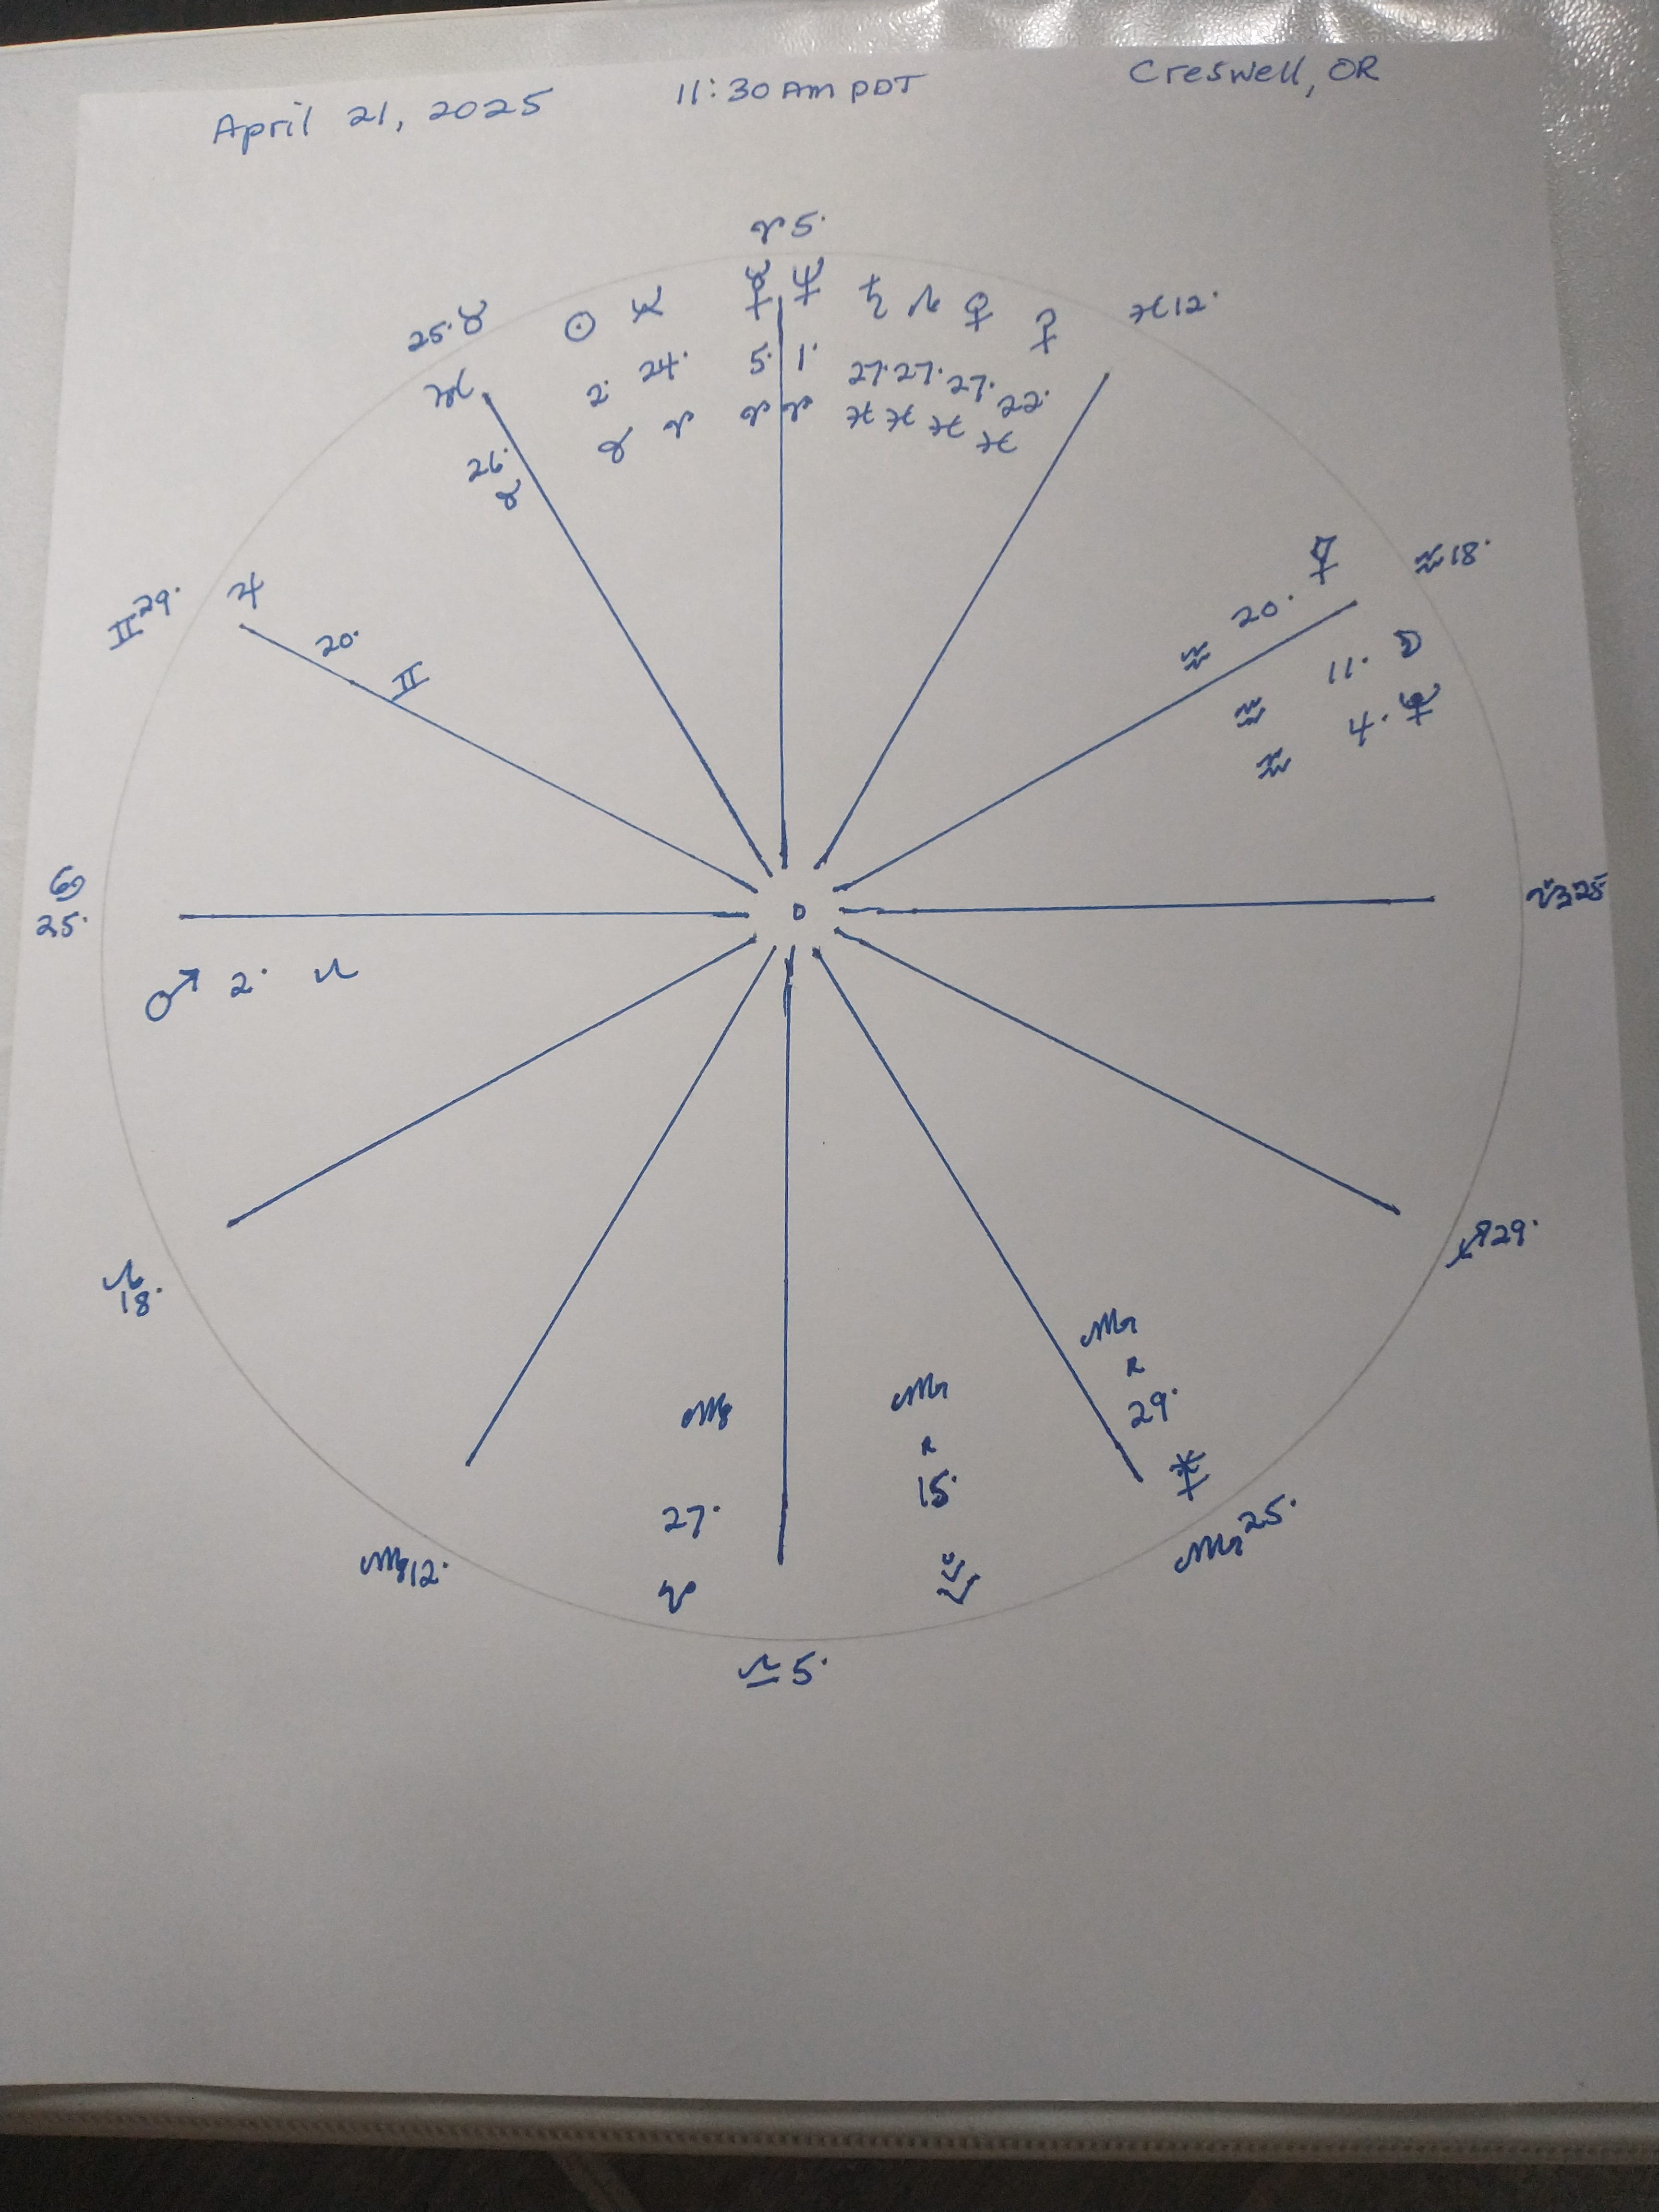 April 21, 2025 11:30 AM PDT Creswell, OR
♈ 5°
25° ♉ ☉ ☿ ♆ ♄ ☊ ♀ ♓ 12°
2° 24° 5° 1° 27° 27° 27° 22°
♉ ♈ ♈ ♈ ♓ ♓ ♓ ♓
26°
♉
♊ 29° ♃
20° ♊
♒ 18°
♒ 20°
♒ 11° ☽
♒ 4° ♇
♋
25°
♑ 25
♂ 2° ♌
♌
18°
♐ 29°
♏
R
29°
♍
27°
♏
R
15°
♍ 12°
♏ 25°
♎ 5°